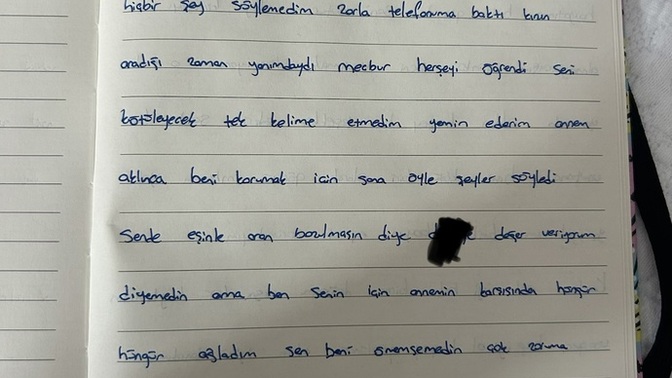 hiçbir şey söylemedim zorla telefonuma baktı
aradığı zaman yanımdaydı mecbur herşeyi öğrendi seni
kötüleyecek tek kelime etmedim yemin ederim annem
aklınca beni korumak için sana öyle şeyler söyledi
Sende eşinle aran bozulmasın diye değer veriyorum
diyemedin ama ben senin için annemin karşısında hüngür
hüngür ağladım sen beni önemsemedin çok zoruma